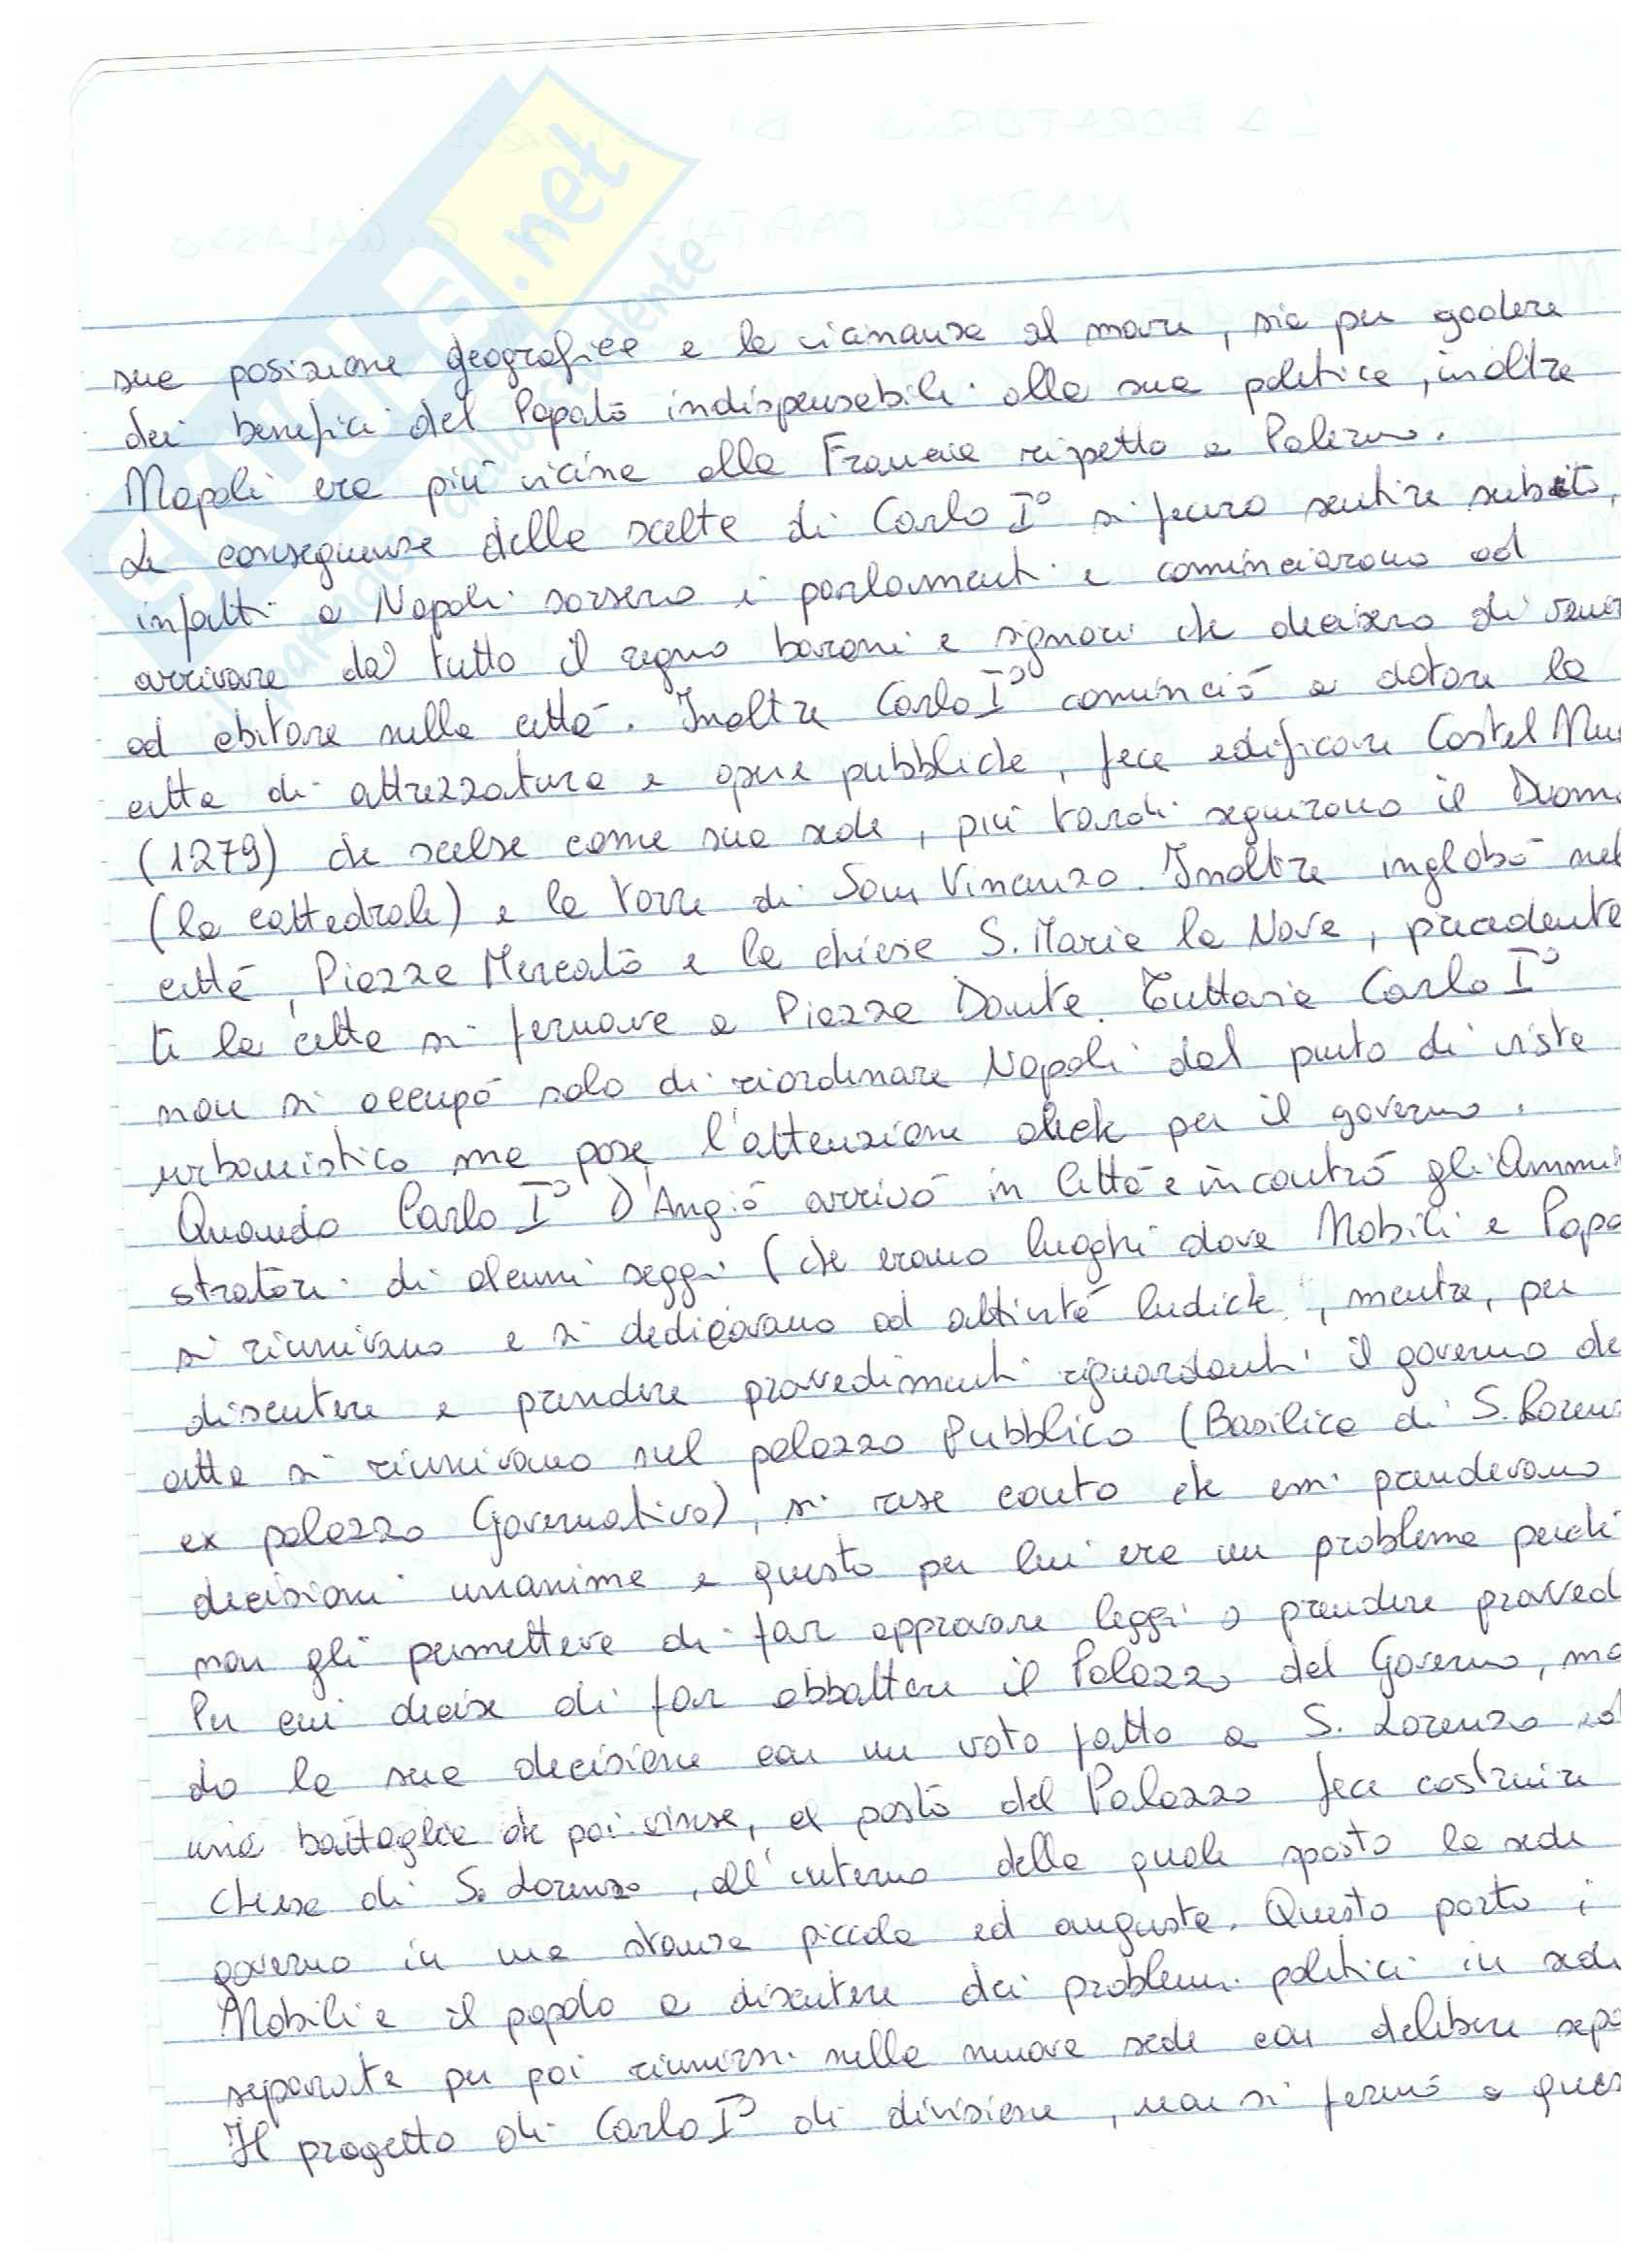 sua posizione geografica e la vicinanza al mare, sia per godere
dei benefici del Papato indispensabili alla sua politica, inoltre
Napoli era più vicina alla Francia rispetto a Palermo.
Le conseguenze delle scelte di Carlo I° si fecero sentire subito,
infatti a Napoli sorsero i parlamenti e cominciarono ad
arrivare da tutto il regno baroni e signori che decisero di venir
ad abitare nella città. Inoltre Carlo I° cominciò a dotare la
città di attrezzature e opere pubbliche, fece edificare Castel Nuo
(1279) che scelse come sua sede, più tardi seguirono il Duomo
(la cattedrale) e la torre di San Vincenzo. Inoltre inglobò nel
città, Piazza Mercato e la chiesa S. Maria la Nova, precedente
ti la città si fermava a Piazza Dante. Tuttavia Carlo I°
non si occupò solo di riordinare Napoli dal punto di vista
urbanistico ma pose l'attenzione anche per il governo.
Quando Carlo I° D'Angiò arrivò in città e incontrò gli Ammini
stratori di alcuni seggi (che erano luoghi dove Nobili e Popo
si riunivano e si dedicavano ad attività ludiche, mentre, per
discutere e prendere provvedimenti riguardanti il governo de
città si riunivano nel palazzo Pubblico (Basilica di S. Loren
ex palazzo Governativo), si rese conto che essi prendevano
decisioni unanime e questo per lui era un problema perché
non gli permetteva di far approvare leggi o prendere provved
Per cui decise di far abbattere il Palazzo del Governo, ma
do la sua decisione con un voto fatto a S. Lorenzo
una battaglia che poi vinse, al posto del Palazzo fece costruire
chiesa di S. Lorenzo, all'interno della quale sposto la sede
governo in una stanza piccola ed angusta. Questo porto i
Nobili e il popolo a discutere dei problemi politici in sedi
separate per poi riunirsi nella nuova sede con delibere sepa
Il progetto di Carlo I° di divisione, non si fermò a ques
SKUOLA.net
imparando dallo studente